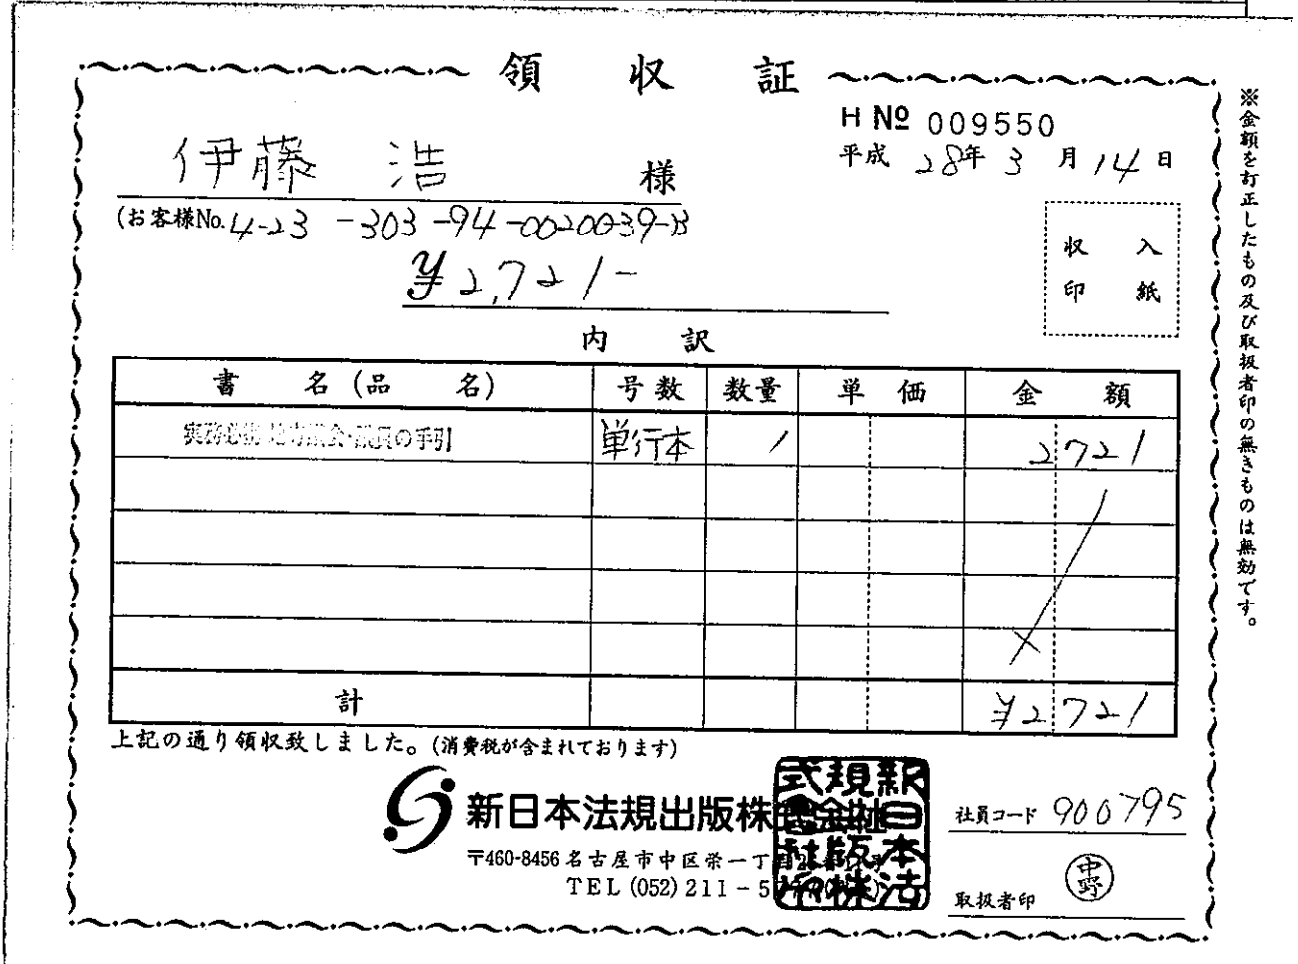 領 収 証
H № 009550
平成 28年 3 月 14 日
伊藤 浩 様
(お客様No. 4-23-303-94-0020039-B
¥2,721-
収 入
印 紙
内 訳
書 名(品 名) 号数 数量 単 価 金 額
実務必携 地方議会・議員の手引 単行本 1 2721
計 ¥2721
上記の通り領収致しました。(消費税が含まれております)
新日本法規出版株式会社
〒460-8456 名古屋市中区栄一丁目
TEL (052) 211-5
社員コード 900795
取扱者印 中野
※金額を訂正したもの及び取扱者印の無きものは無効です。